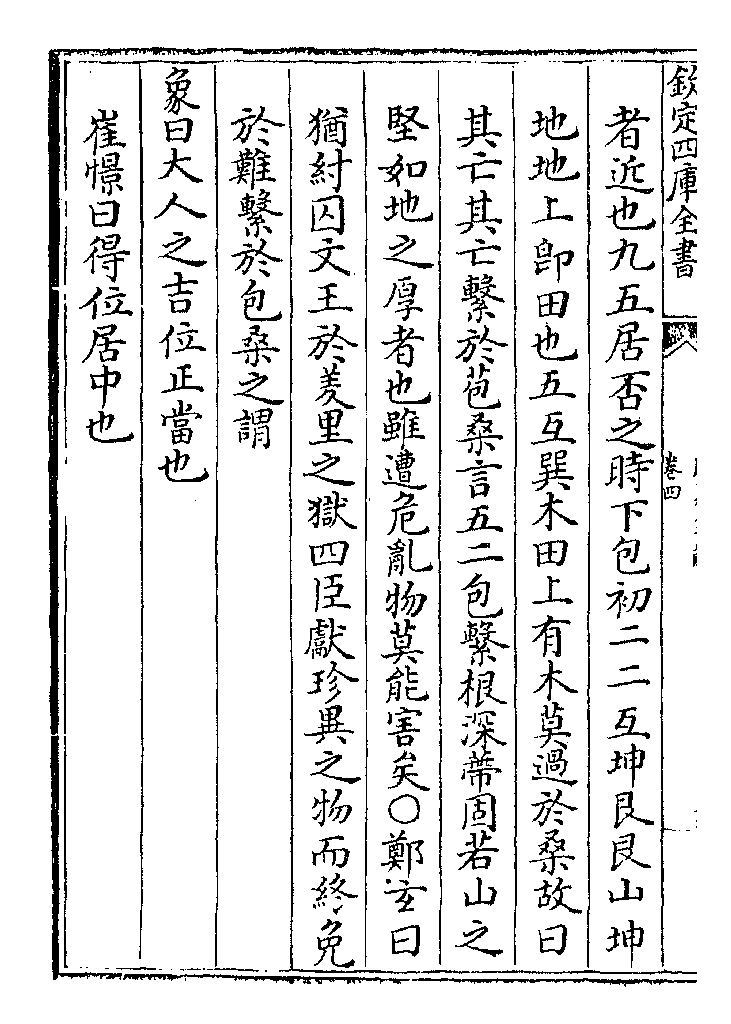 欽定四庫全書
卷四
者近也九五居否之時下包初二二互坤艮艮山坤
地地上即田也五互巽木田上有木莫過於桑故曰
其亡其亡繫於苞桑言五二包繫根深蔕固若山之
堅如地之厚者也雖遭危亂物莫能害矣○鄭玄曰
猶紂囚文王於羑里之獄四臣獻珍異之物而終免
於難繫於包桑之謂
象曰大人之吉位正當也
崔憬曰得位居中也